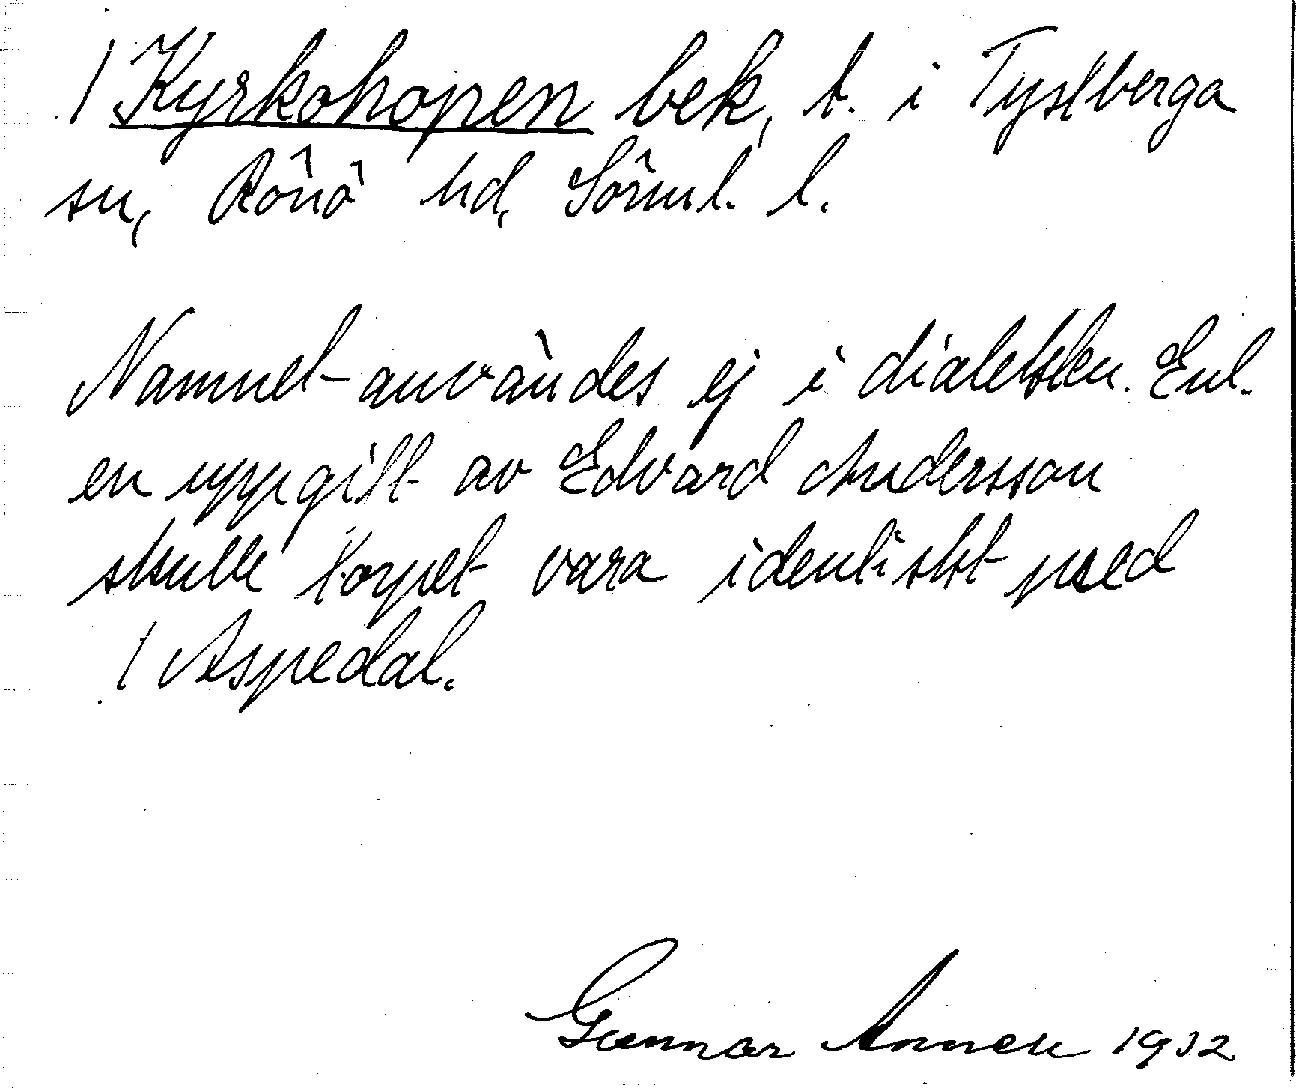 / Kyrkohopen bek, t. i Tystberga
sn, Rönö hd, Sörml. l.
Namnet användes ej i dialekten. Enl.
en uppgift av Edvard Andersson
skulle torpet vara identiskt med
/ Aspedal.
Gunnar 1932